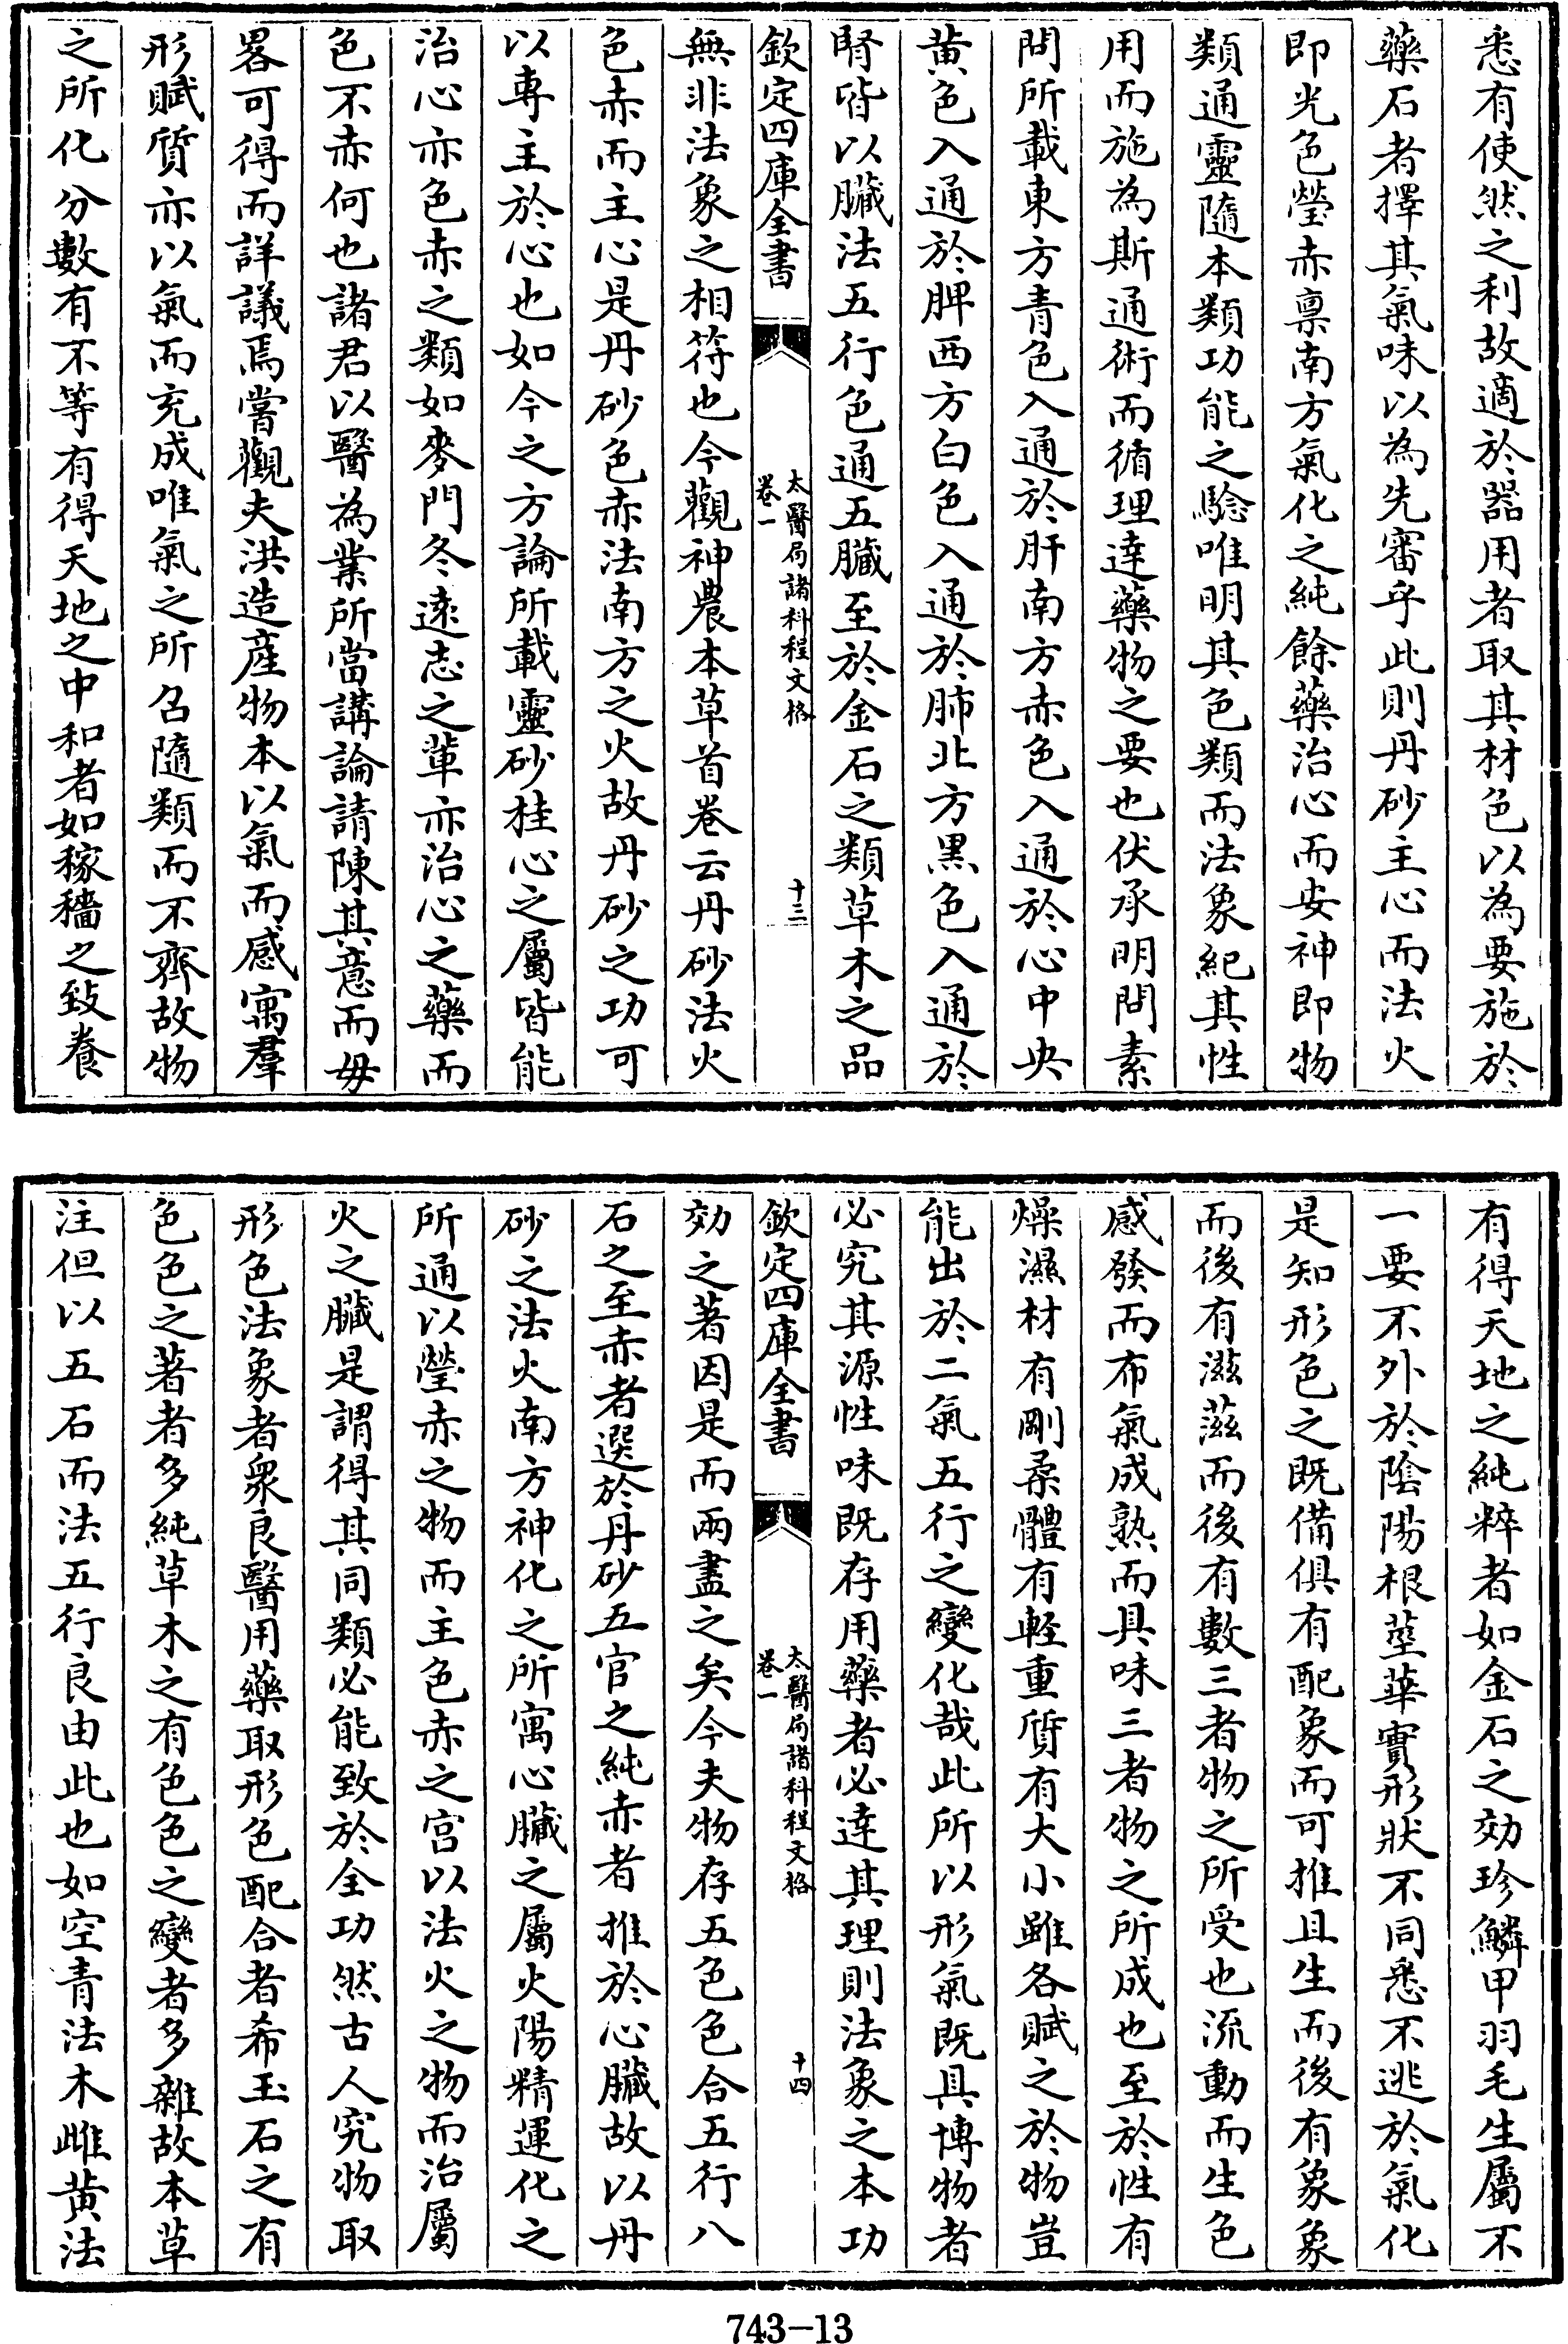 悉有使然之利故適於器用者取其材色以為要施於
藥石者擇其氣味以為先審乎此則丹砂主心而法火
即光色瑩赤禀南方氣化之純餘藥治心而安神即物
類通靈隨本類功能之驗唯明其色類而法象紀其性
用而施為斯通術而循理達藥物之要也伏承明問素
問所載東方青色入通於肝南方赤色入通於心中央
黄色入通於脾西方白色入通於肺北方黑色入通於
腎皆以臟法五行色通五臟至於金石之類草木之品
欽定四庫全書
太醫局諸科程文格
卷一
十三
無非法象之相符也今觀神農本草首卷云丹砂法火
色赤而主心是丹砂色赤法南方之火故丹砂之功可
以專主於心也如今之方論所載靈砂桂心之屬皆能
治心亦色赤之類如麥門冬遠志之軰亦治心之藥而
色不赤何也諸君以醫為業所當講論請陳其意而毋
畧可得而詳議焉嘗觀夫洪造産物本以氣而感寓羣
形賦質亦以氣而充成唯氣之所召隨類而不齊故物
之所化分數有不等有得天地之中和者如稼穡之致養
有得天地之純粹者如金石之効珍鱗甲羽毛生屬不
一要不外於陰陽根莖華實形狀不同悉不逃於氣化
是知形色之既備俱有配象而可推且生而後有象象
而後有滋滋而後有數三者物之所受也流動而生色
感發而布氣成熟而具味三者物之所成也至於性有
燥濕材有剛柔體有輕重質有大小雖各賦之於物豈
能出於二氣五行之變化哉此所以形氣既具博物者
必究其源性味既存用藥者必達其理則法象之本功
欽定四庫全書
太醫局諸科程文格
卷一
十四
効之著因是而兩盡之矣今夫物存五色色合五行八
石之至赤者選於丹砂五官之純赤者推於心臟故以丹
砂之法火南方神化之所寓心臟之屬火陽精運化之
所通以瑩赤之物而主色赤之宫以法火之物而治屬
火之臟是謂得其同類必能致於全功然古人究物取
形色法象者衆良醫用藥取形色配合者希玉石之有
色色之著者多純草木之有色色之變者多雜故本草
注但以五石而法五行良由此也如空青法木雌黄法
743-13